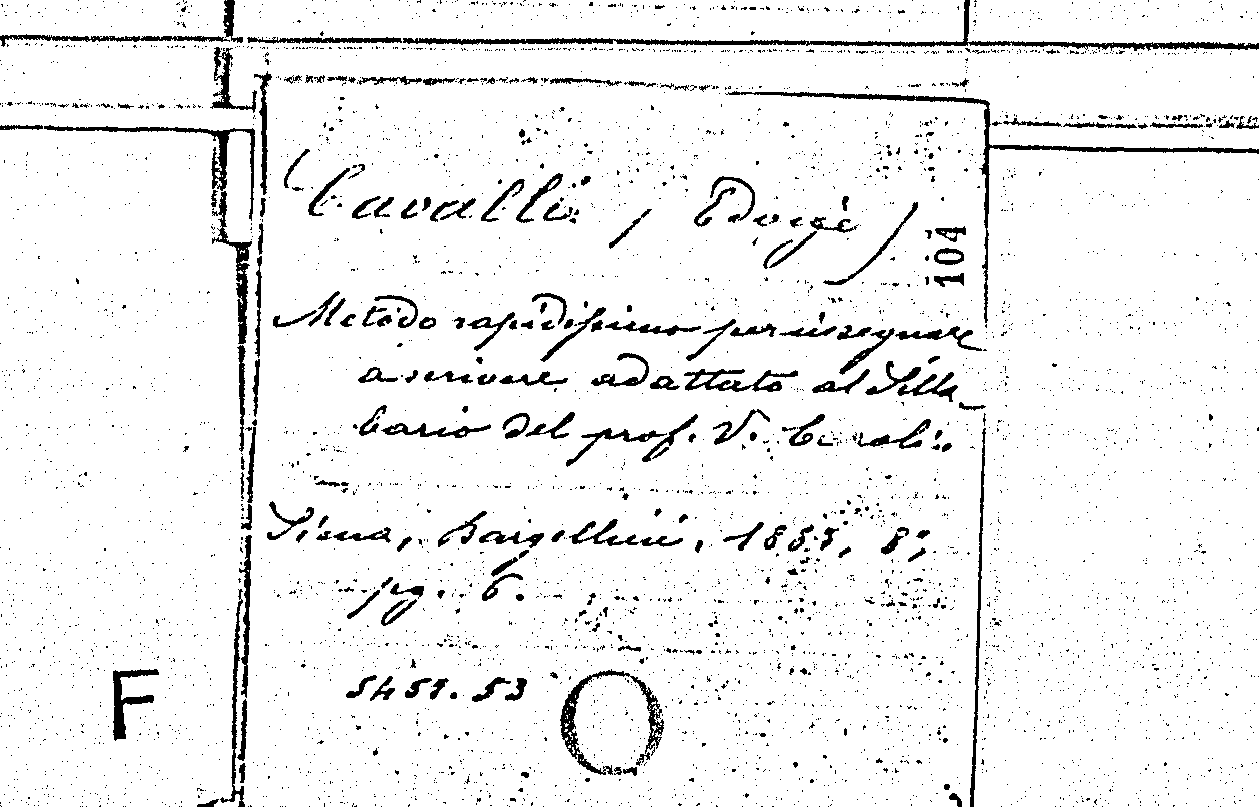 (Cavalli, Edvige)
104
Metodo rapidissimo per insegnare
a scrivere adattato al Silla-
bario del prof. V.
Siena, Bargellini, 1887, 8°,
pg. 6.
5457.53
F
O